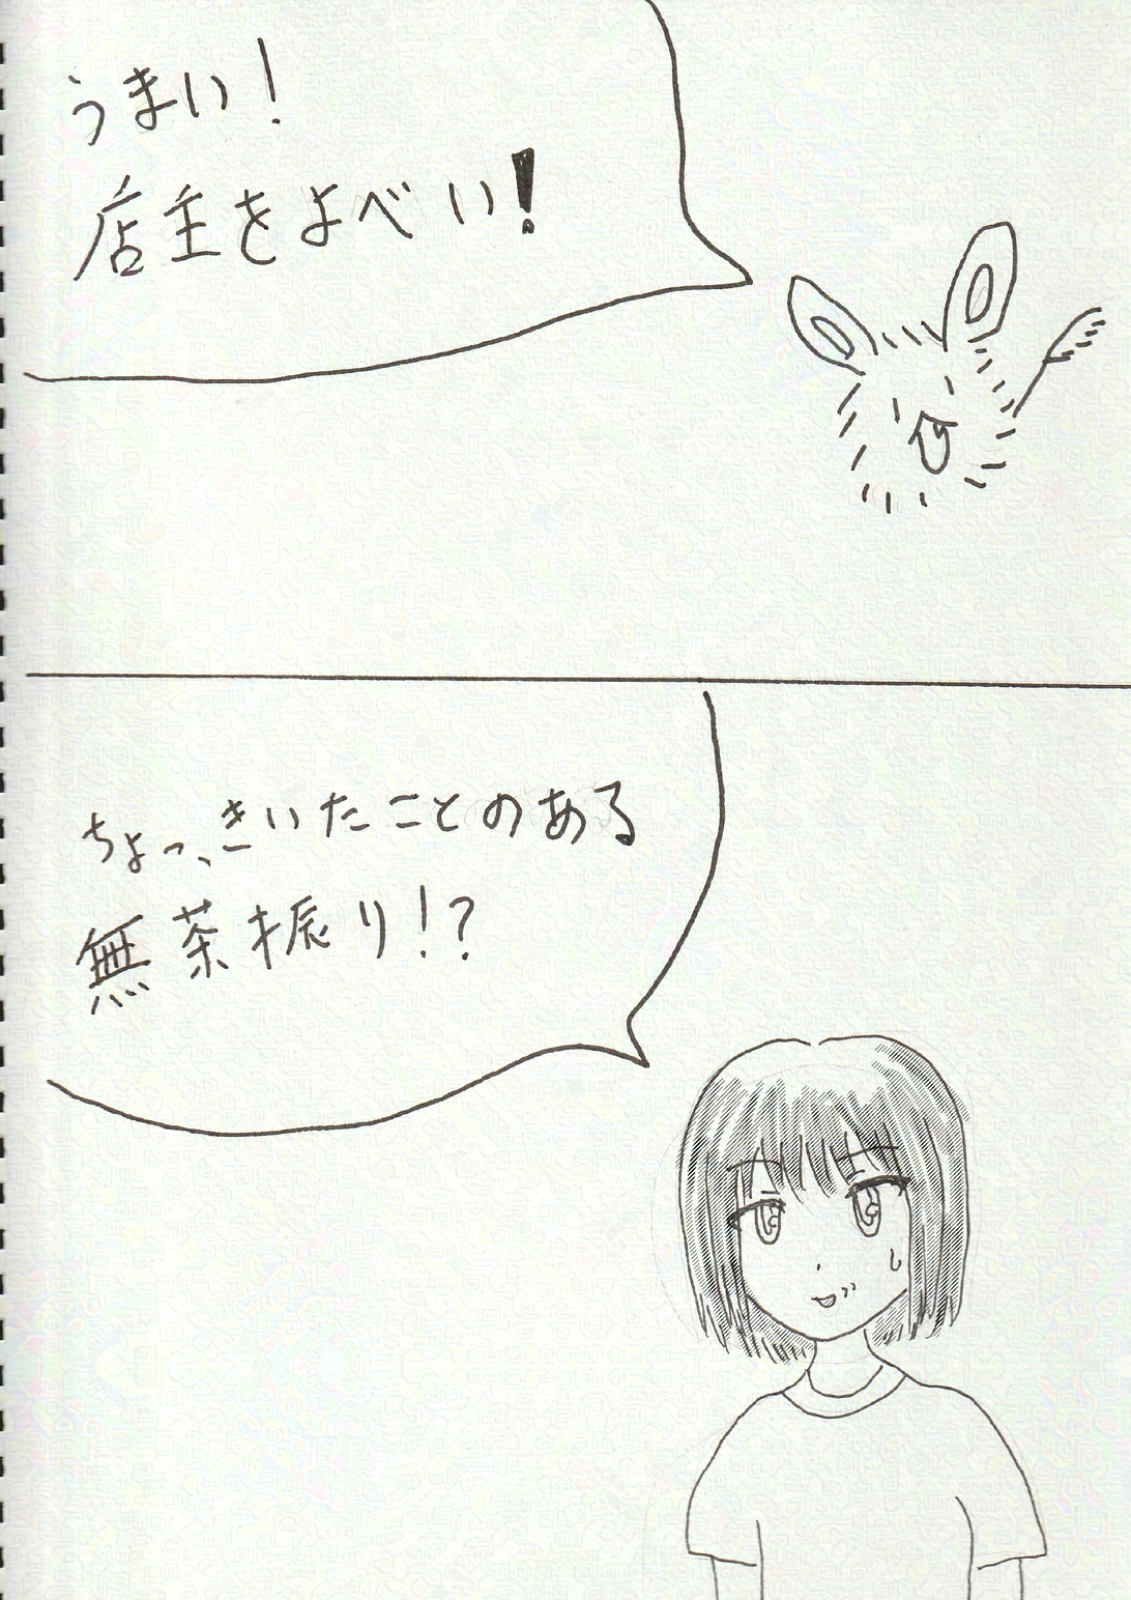 うまい！
店主をよべい！
ちょっ、きいたことのある
無茶振り！？